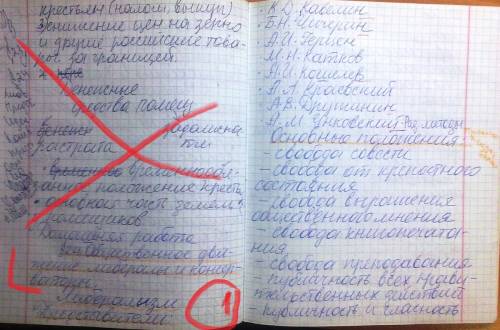 крестьян (налоги, выкуп)
снижение цен на зерно
и другие российские това-
ры за границей.
денежные
средства помещ
растрата
временнообя-
занное положение кресть
основная часть земель
помещиков
Домашняя работа
Общественное дви-
жение либералы и консер-
ваторы.
Либерализм
Представители:
1
· К.Д. Кавелин
· Б.Н. Чичерин
· А.И. Герцен
· М.Н. Катков
· А.И. Кошелев
· А.А. Краевский
· А.В. Дружинин
· А.М. Унковский
Основные положения
- свобода совести
- свобода от крепостного
состояния
- свобода выражения
общественного мнения
- свобода книгопечата-
ния
- свобода преподавания
- публичность всех прави-
тельственных действий
- публичность и гласность